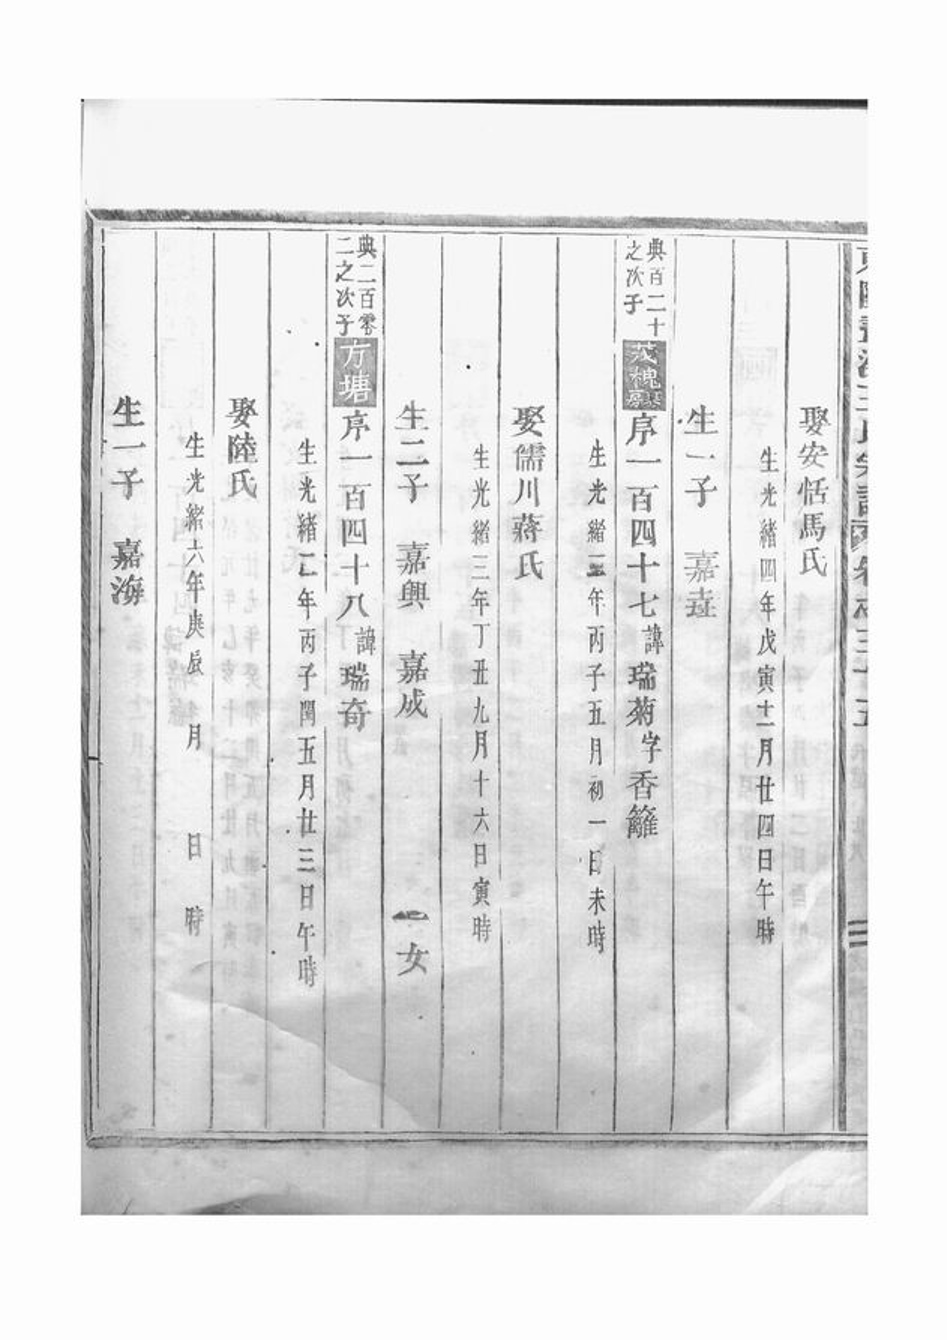 娶安恬馬氏
生光緒四年戊寅十二月廿四日午時
生一子　嘉
典百二十
之次子
茂槐
序一百四十七諱瑞菊字香籬
生光緒二年丙子五月初一日未時
娶儒川蔣氏
生光緒三年丁丑九月十六日寅時
生二子　嘉興　嘉成　一女
典二百零
二之次子
方塘
序一百四十八諱瑞奇
生光緒二年丙子閏五月廿三日午時
娶陸氏
生光緒六年庚辰　月　日　時
生一子　嘉海